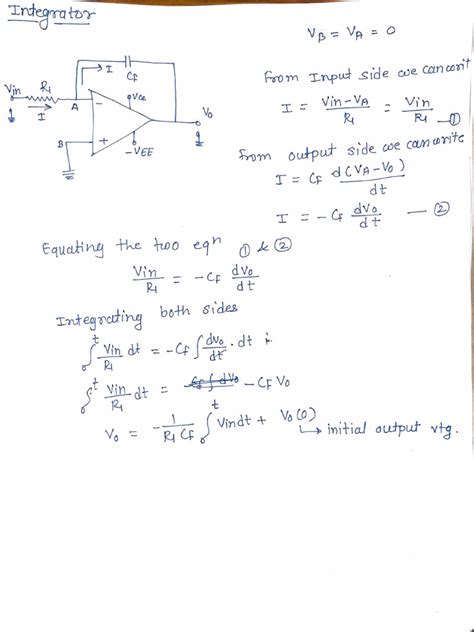 Integrator
V_B = V_A = 0
C_F
I
Vin
R_1
A
I
B
+Vcc
-VEE
V_o
From Input side we can writ
I = (Vin - V_A)/R_1 = Vin/R_1 —①
From output side we can write
I = C_F d(V_A - V_o)/dt
I = -C_F dV_o/dt —②
Equating the two eqn ① & ②
Vin/R_1 = -C_F dV_o/dt
Integrating both sides
∫^t Vin/R_1 dt = -C_F ∫ dV_o/dt · dt
∫^t Vin/R_1 dt = -C_F V_o
V_o = -1/(R_1 C_F) ∫^t Vin dt + V_o(0)
↳ initial output vtg.